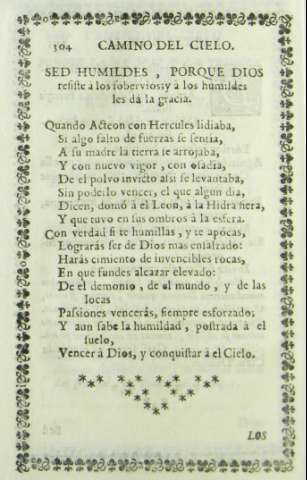 304 CAMINO DEL CIELO.
SED HUMILDES, PORQUE DIOS
resiste à los soberviosiy à los humildes
les dà la gracia.
Quando Acteon con Hercules lidiaba,
Si algo falto de fuerzas se sentia,
A su madre la tierra se arrojaba,
Y con nuevo vigor, con osadia,
De el polvo invicto assi se levantaba,
Sin poderlo vencer, el que algun dia,
Dicen, domò à el Leon, à la Hidra fiera,
Y que tuvo en sus ombros à la esfera.
Con verdad si te humillas, y te apocas,
Lograràs ser de Dios mas ensalzado:
Haràs cimiento de invencibles rocas,
En que fundes alcazar elevado:
De el demonio, de el mundo, y de las
locas
Passiones venceràs, siempre esforzado;
Y aun sabe la humildad, postrada à el
suelo,
Vencer à Dios, y conquistar à el Cielo.
LOS